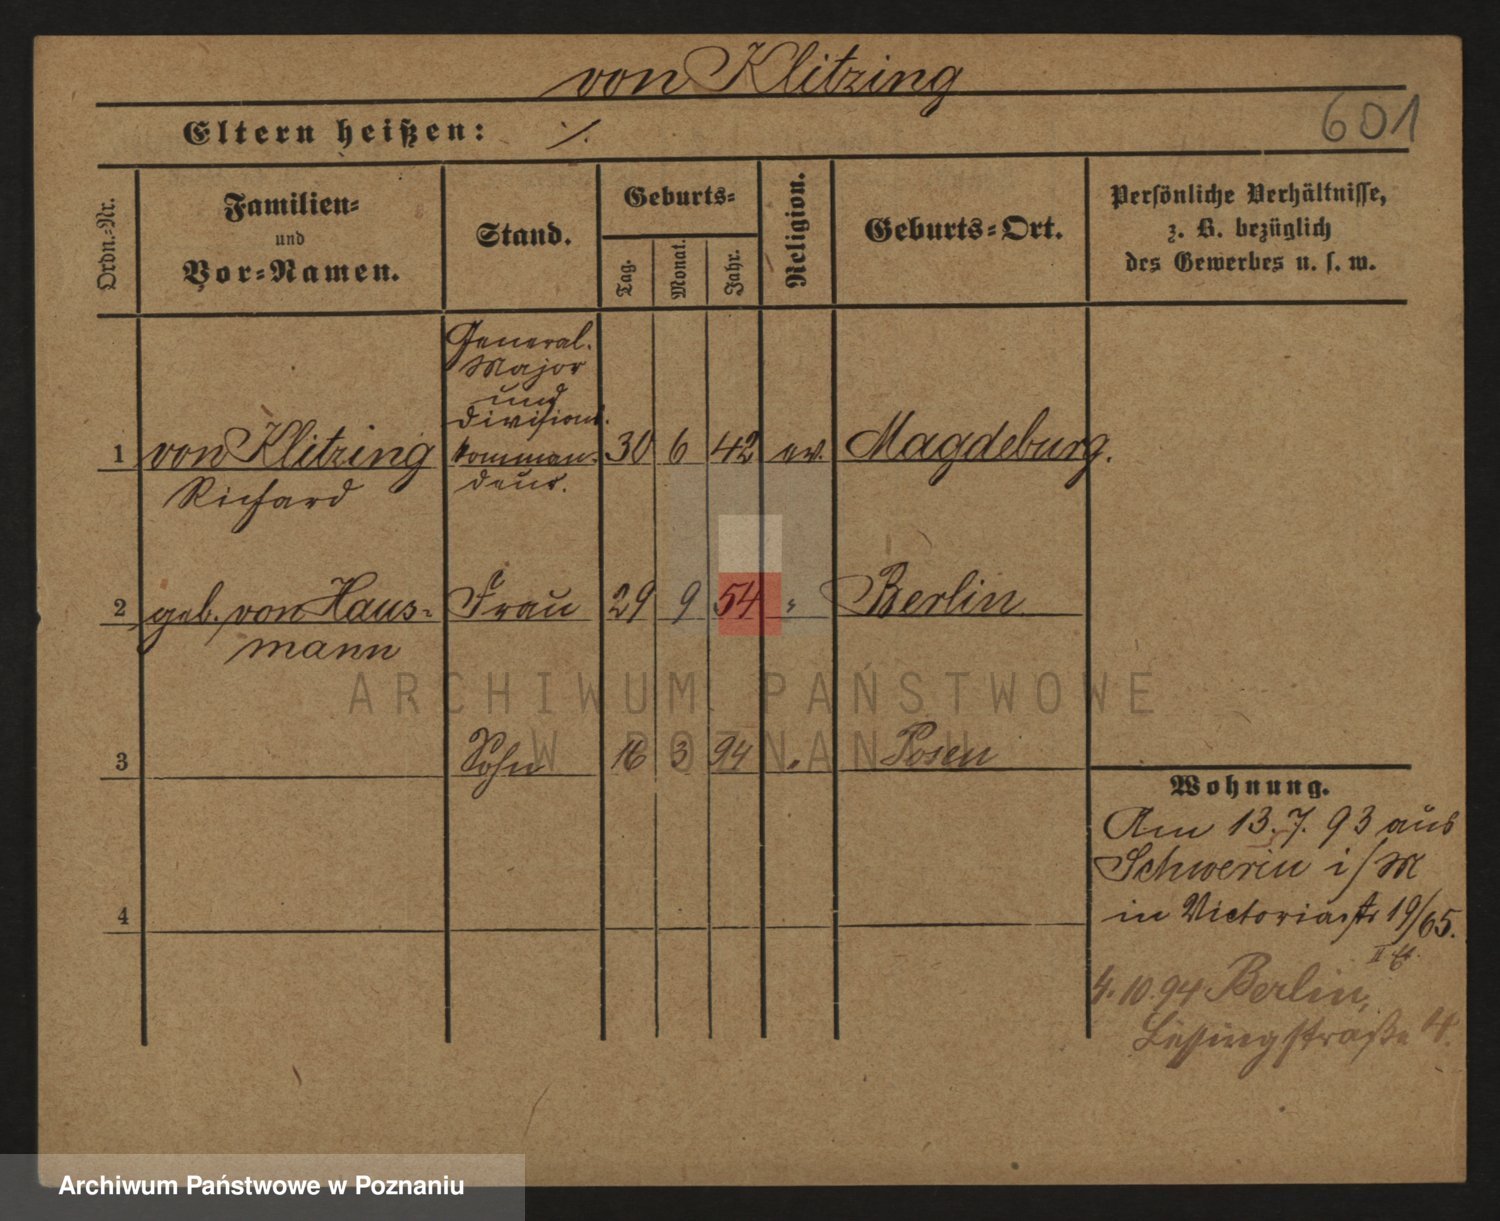 von Klitzing
601
Eltern heißen: ./.
Ordn.-Nr.
Familien-
und
Vor-Namen.
Stand.
Geburts-
Tag.
Monat.
Jahr.
Religion.
Geburts-Ort.
Persönliche Verhältnisse,
z. B. bezüglich
des Gewerbes u. s. w.
General-
Major
und
Divisions-
1 von Klitzing komman- 30 6 42 ev. Magdeburg.
Richard deur.
2 geb. von Haus- Frau 29 9 54 " Berlin
mann
3 Sohn 16 3 94 " Posen
4
Wohnung.
Am 13.7.93 aus
Schwerin i/M
in Victoriastr 19/65.
II
4.10.94 Berlin,
Lessingstraße 4.
ARCHIWUM PAŃSTWOWE
W POZNANIU
Archiwum Państwowe w Poznaniu